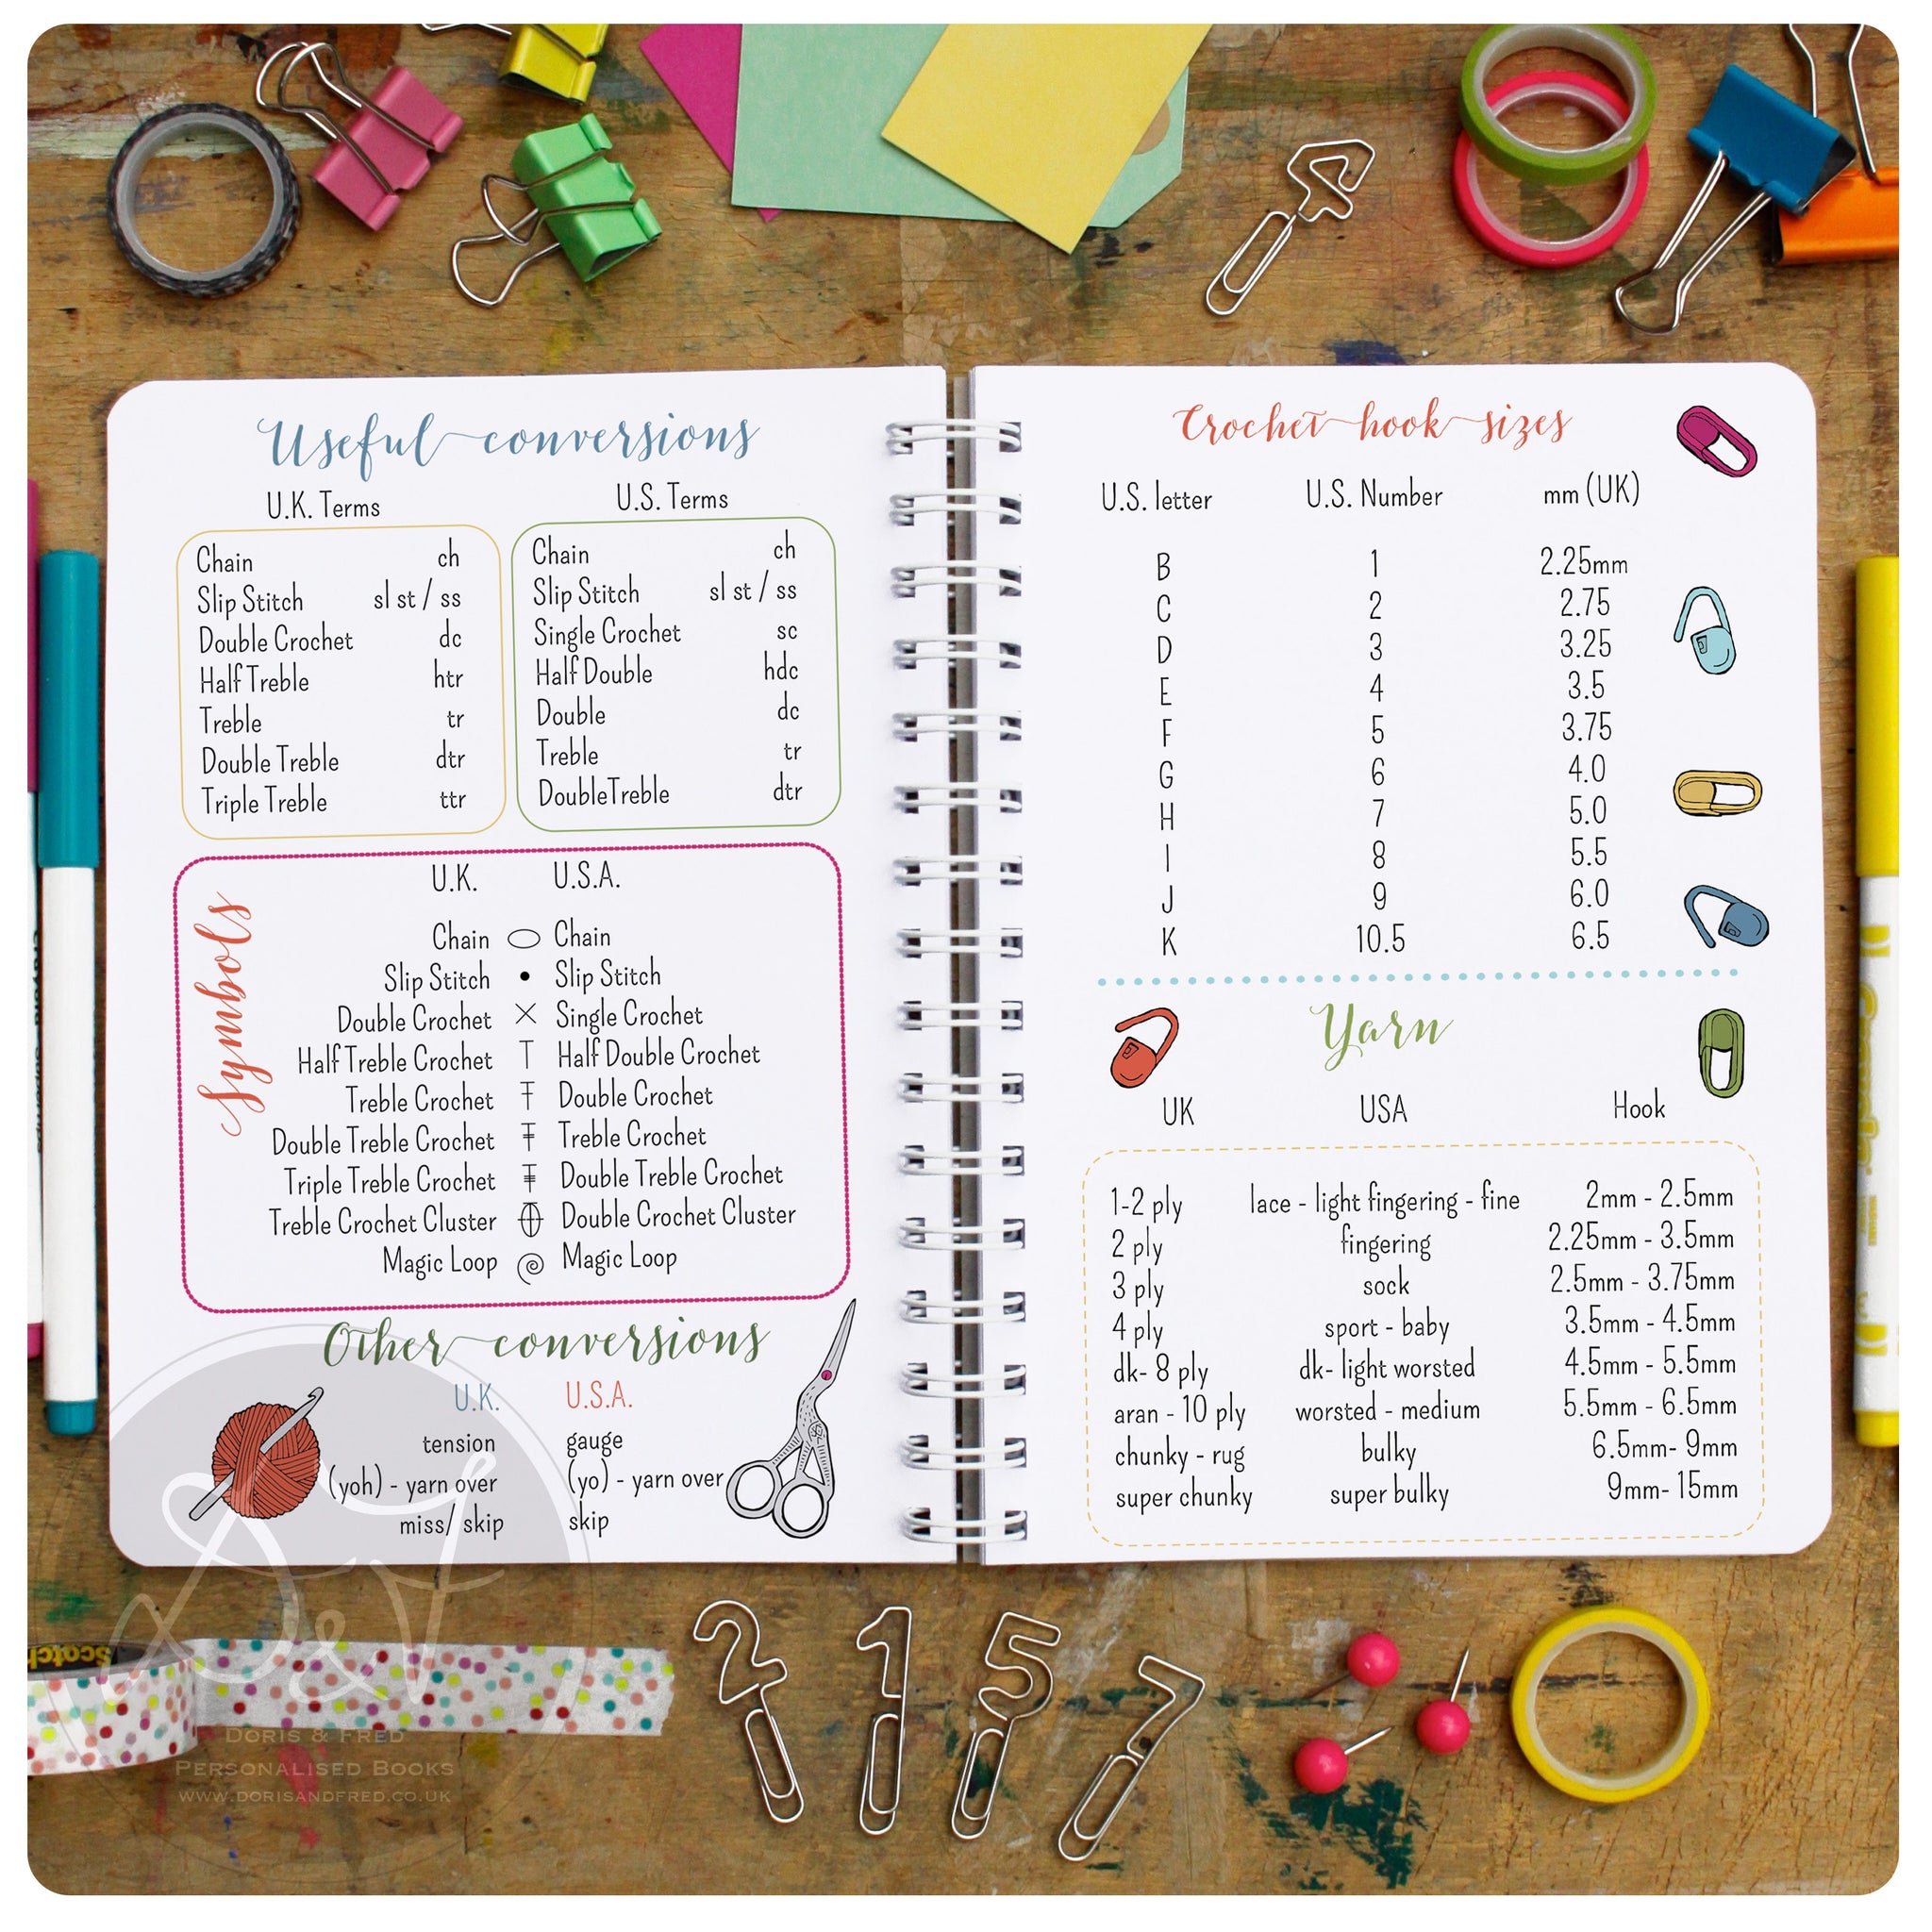 Useful conversions
U.K. Terms U.S. Terms
Chain ch Chain ch
Slip Stitch sl st / ss Slip Stitch sl st / ss
Double Crochet dc Single Crochet sc
Half Treble htr Half Double hdc
Treble tr Double dc
Double Treble dtr Treble tr
Triple Treble ttr DoubleTreble dtr
Symbols
U.K. U.S.A.
Chain Chain
Slip Stitch Slip Stitch
Double Crochet Single Crochet
Half Treble Crochet Half Double Crochet
Treble Crochet Double Crochet
Double Treble Crochet Treble Crochet
Triple Treble Crochet Double Treble Crochet
Treble Crochet Cluster Double Crochet Cluster
Magic Loop Magic Loop
Other conversions
U.K. U.S.A.
tension gauge
(yoh) - yarn over (yo) - yarn over
miss/ skip skip
Crochet hook sizes
U.S. letter U.S. Number mm (UK)
B 1 2.25mm
C 2 2.75
D 3 3.25
E 4 3.5
F 5 3.75
G 6 4.0
H 7 5.0
I 8 5.5
J 9 6.0
K 10.5 6.5
Yarn
UK USA Hook
1-2 ply lace - light fingering - fine 2mm - 2.5mm
2 ply fingering 2.25mm - 3.5mm
3 ply sock 2.5mm - 3.75mm
4 ply sport - baby 3.5mm - 4.5mm
dk- 8 ply dk- light worsted 4.5mm - 5.5mm
aran - 10 ply worsted - medium 5.5mm - 6.5mm
chunky - rug bulky 6.5mm- 9mm
super chunky super bulky 9mm- 15mm
Scotch
2 1 5 7
D&F
Doris & Fred
Personalised Books
www.dorisandfred.co.uk